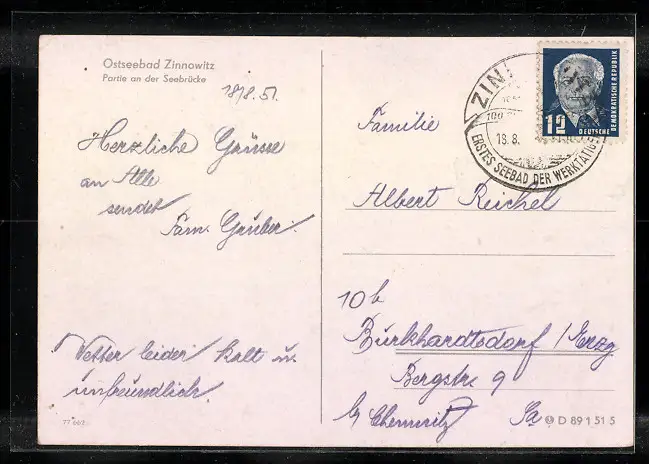 Ostseebad Zinnowitz
Partie an der Seebrücke
18/8.51.
Herzliche Grüsse
an Alle
sendet
Fam. Gruber.
Wetter leider kalt u.
unfreundlich.
77 667
ZIN
18.8.
ERSTES SEEBAD DER WERKTÄTIG
12
DEUTSCHE
DEMOKRATISCHE REPUBLIK
Familie
Albert Reichel
10b
Burkhardtsdorf / Erzg
Bergstr. 9
b/ Chemnitz Sa
D 89 1 51 5